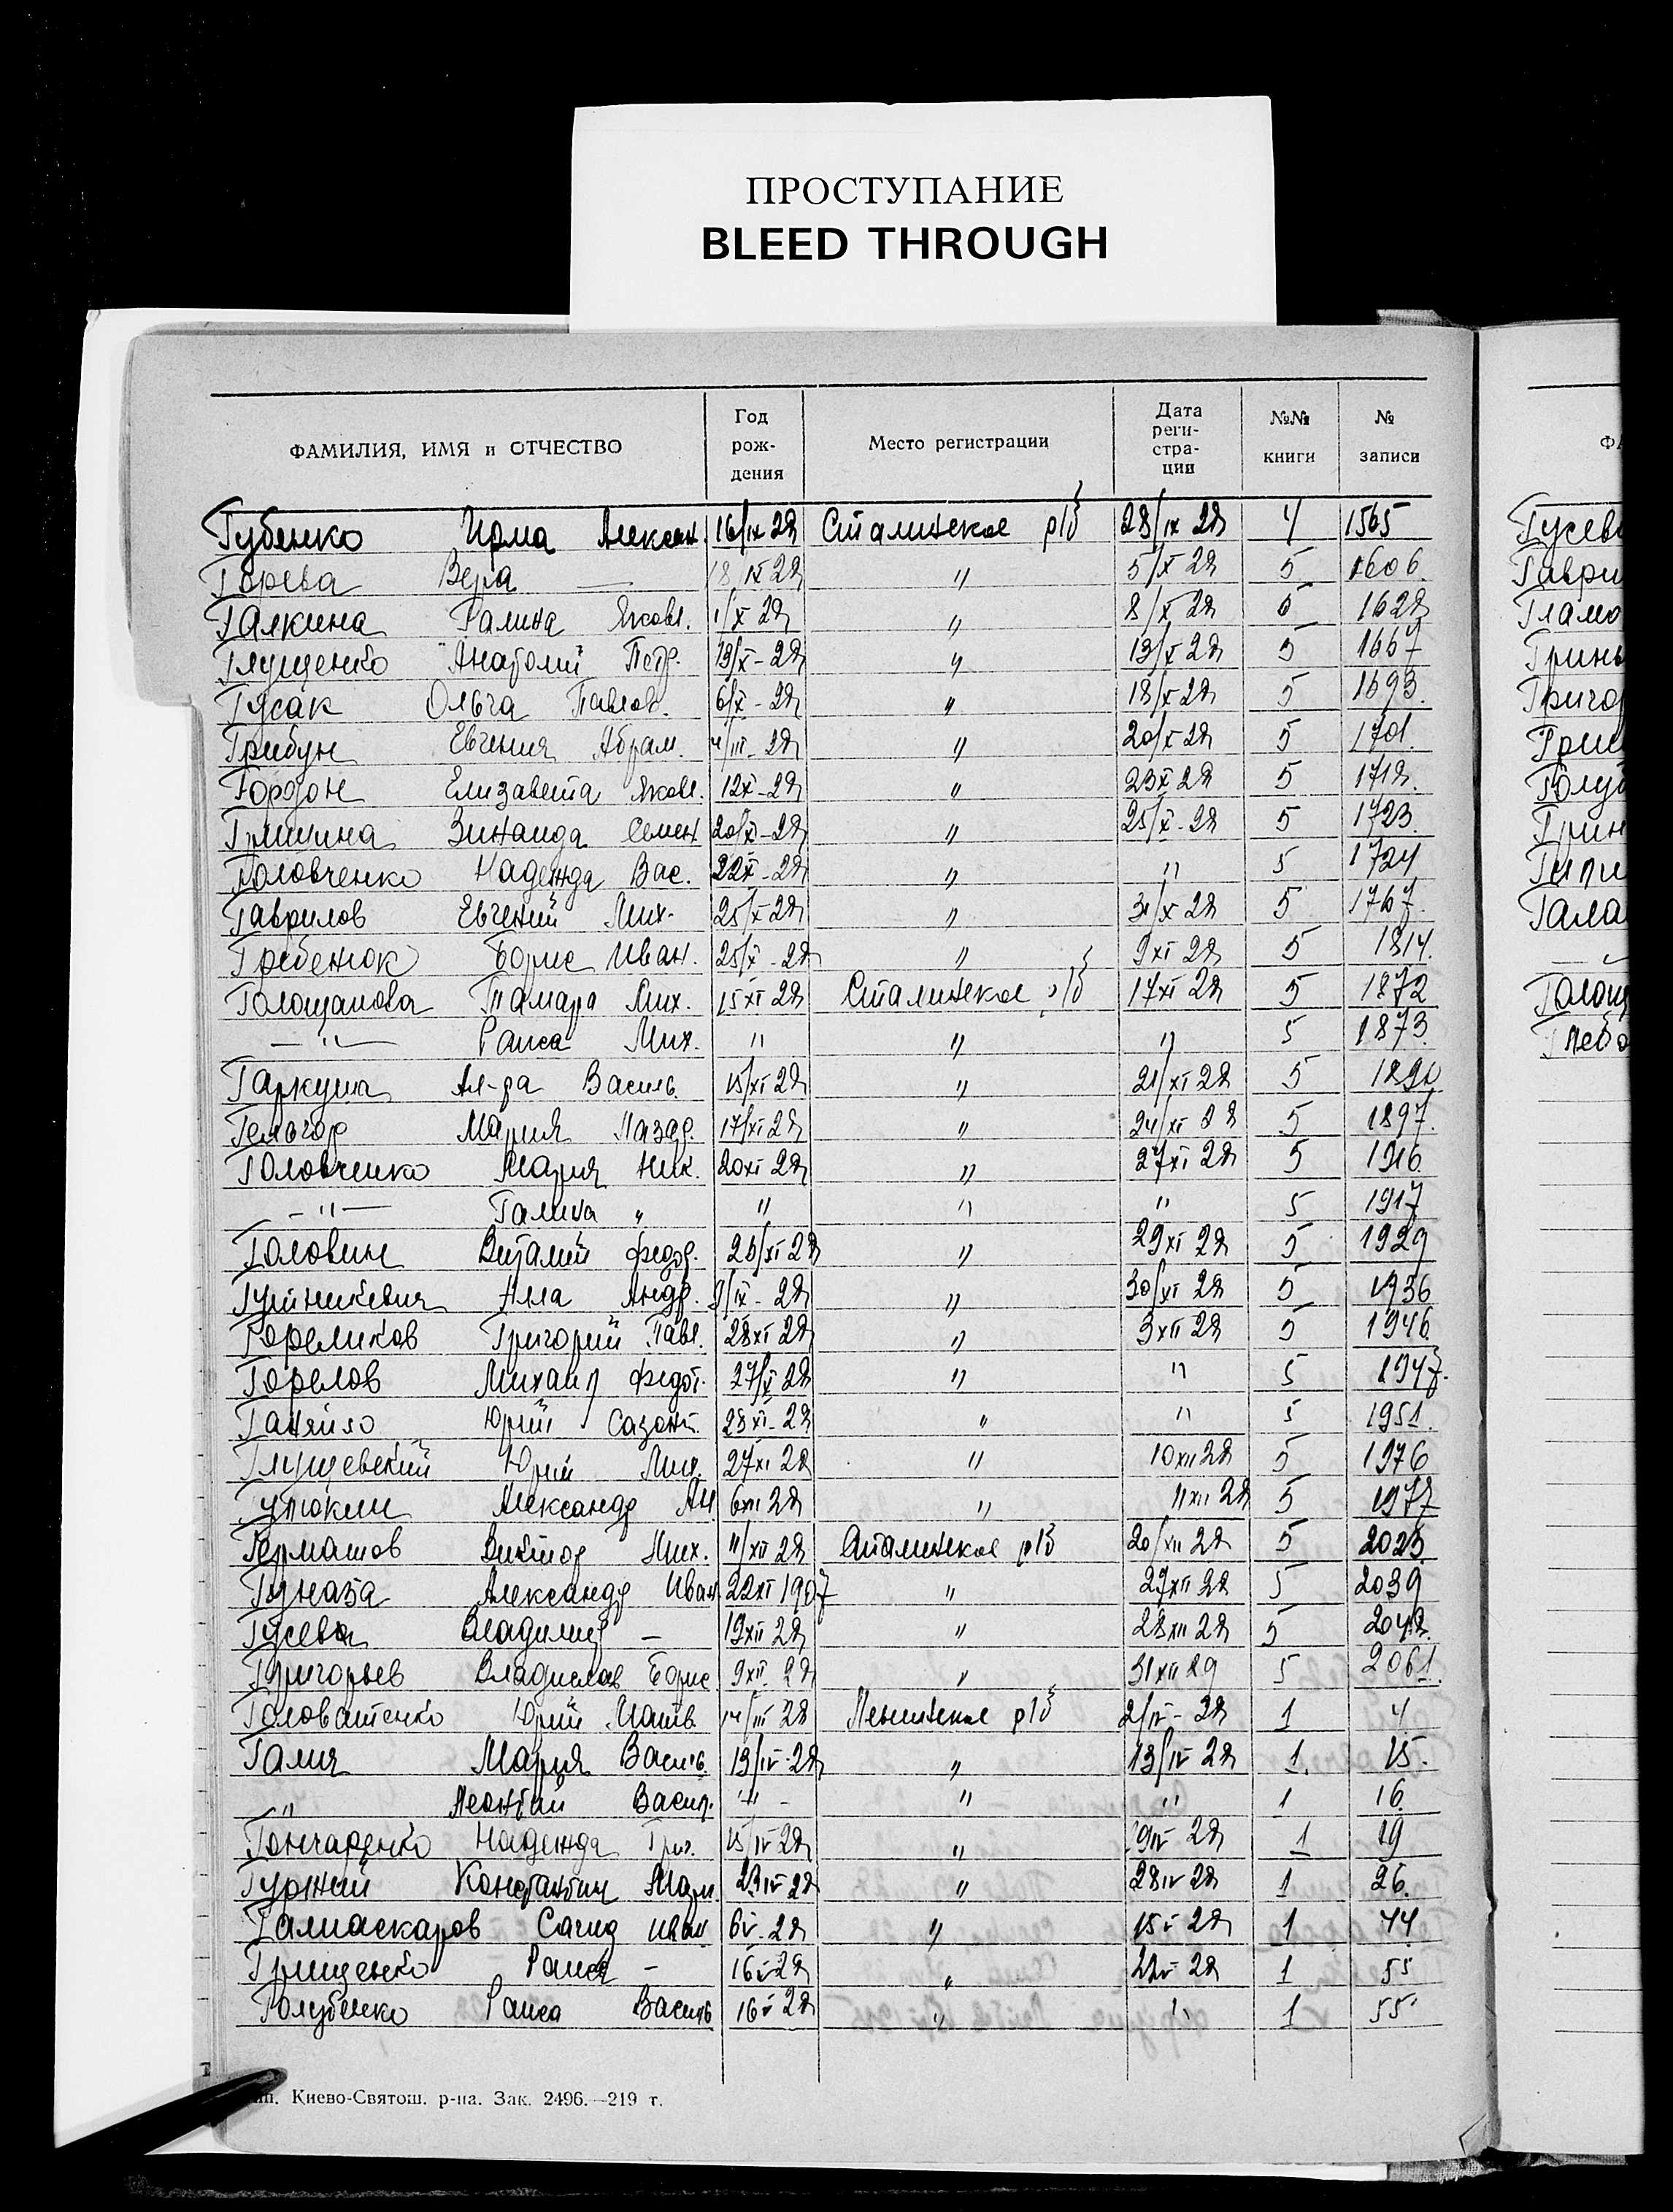 ПРОСТУПАНИЕ
BLEED THROUGH
ФАМИЛИЯ, ИМЯ и ОТЧЕСТВО Год рож- дения Место регистрации Дата реги- стра- ции №№ книги № записи
Губенко Ирма Алексан. 16/IX 28 Сталинское р/б 28/IX 28 4 1565
Горева Вера — 18/IX 28 " 5/X 28 5 1606
Галкина Галина Яковл. 1/X 28 " 8/X 28 5 1628
Глущенко Анатолий Петр. /X-28 " 13/X 28 5 1667
Гусак Ольга Павлов. 6/X-28 " 18/X 28 5 1693
Грибун Евгения Абрам. 4/III-28 " 20/X-28 5 1701
Гордон Елизавета Яковл. 12X-28 " 23X 28 5 1718
Гришина Зинаида Семен 20/X-28 " 25/X-28 5 1723
Головченко Надежда Вас. 22X-28 " " 5 1724
Гаврилов Евгений Мих. 25/X-28 " 31/X 28 5 1767
Гребенюк Борис Иван. 25/X-28 " 9XI 28 5 1814
Голощапова Тамара Мих. 15XI 28 Сталинское р/б 17XI 28 5 1872
—"— Раиса Мих. " " " 5 1873
Гаркуша Ал-ра Василь. 15/XI 28 " 21/XI 28 5
Мария Лазар. 17/XI 28 " 24/XI 28 5 1897
Головченко Мария Ник. 20XI 28 " 27XI 28 5 1916
—"— Галина " " " " 5 1917
Головин Виталий Федор. 26/XI 28 " 29XI 28 5 1929
Алла Андр. 9/IX-28 " 30/XI 28 5 1936
Гореликов Григорий Павл. 28XI 28 " 3XII 28 5 1946
Горелов Михаил Федот. 27/X 28 " " 5 1947
Юрий 28XI-28 " " 5 1951
Глущевский Юрий Мих. 27XI 28 " 10XII 28 5 1976
Александр 6XII 28 " 11XII 28 5 1977
Гермашов Виктор Мих. 11/XII 28 Сталинское р/б 20/XII 28 5 2023
Александр Иван 22XI 1907 " 27XII 28 5 2039
Гусева Владимир — 19XII 28 " 28XII 28 5 2048
Григорьев Владислав Борис. 9XII 28 " 31XII 29 5 2061
Головатенко Юрий Матв. 14/III 28 Ленинское р/б 2/IV-28 1 4
Галич Мария Василь. 13/IV-28 " 13/IV 28 1 15
" Леонтий Васил. " " " 1 16
Гончаренко Надежда Григ. 15/IV 28 " 19IV 28 1 19
Гуржий Константин 23IV 28 " 28IV 28 1 26
Галиаскаров Сагид Иван 6V-28 " 15V 28 1 44
Грищенко Раиса — 16V-28 " 22V 28 1 55
Голубенко Раиса Василь 16V 28 " " 1 55
Киево-Святош. р-на. Зак. 2496.—219 т.